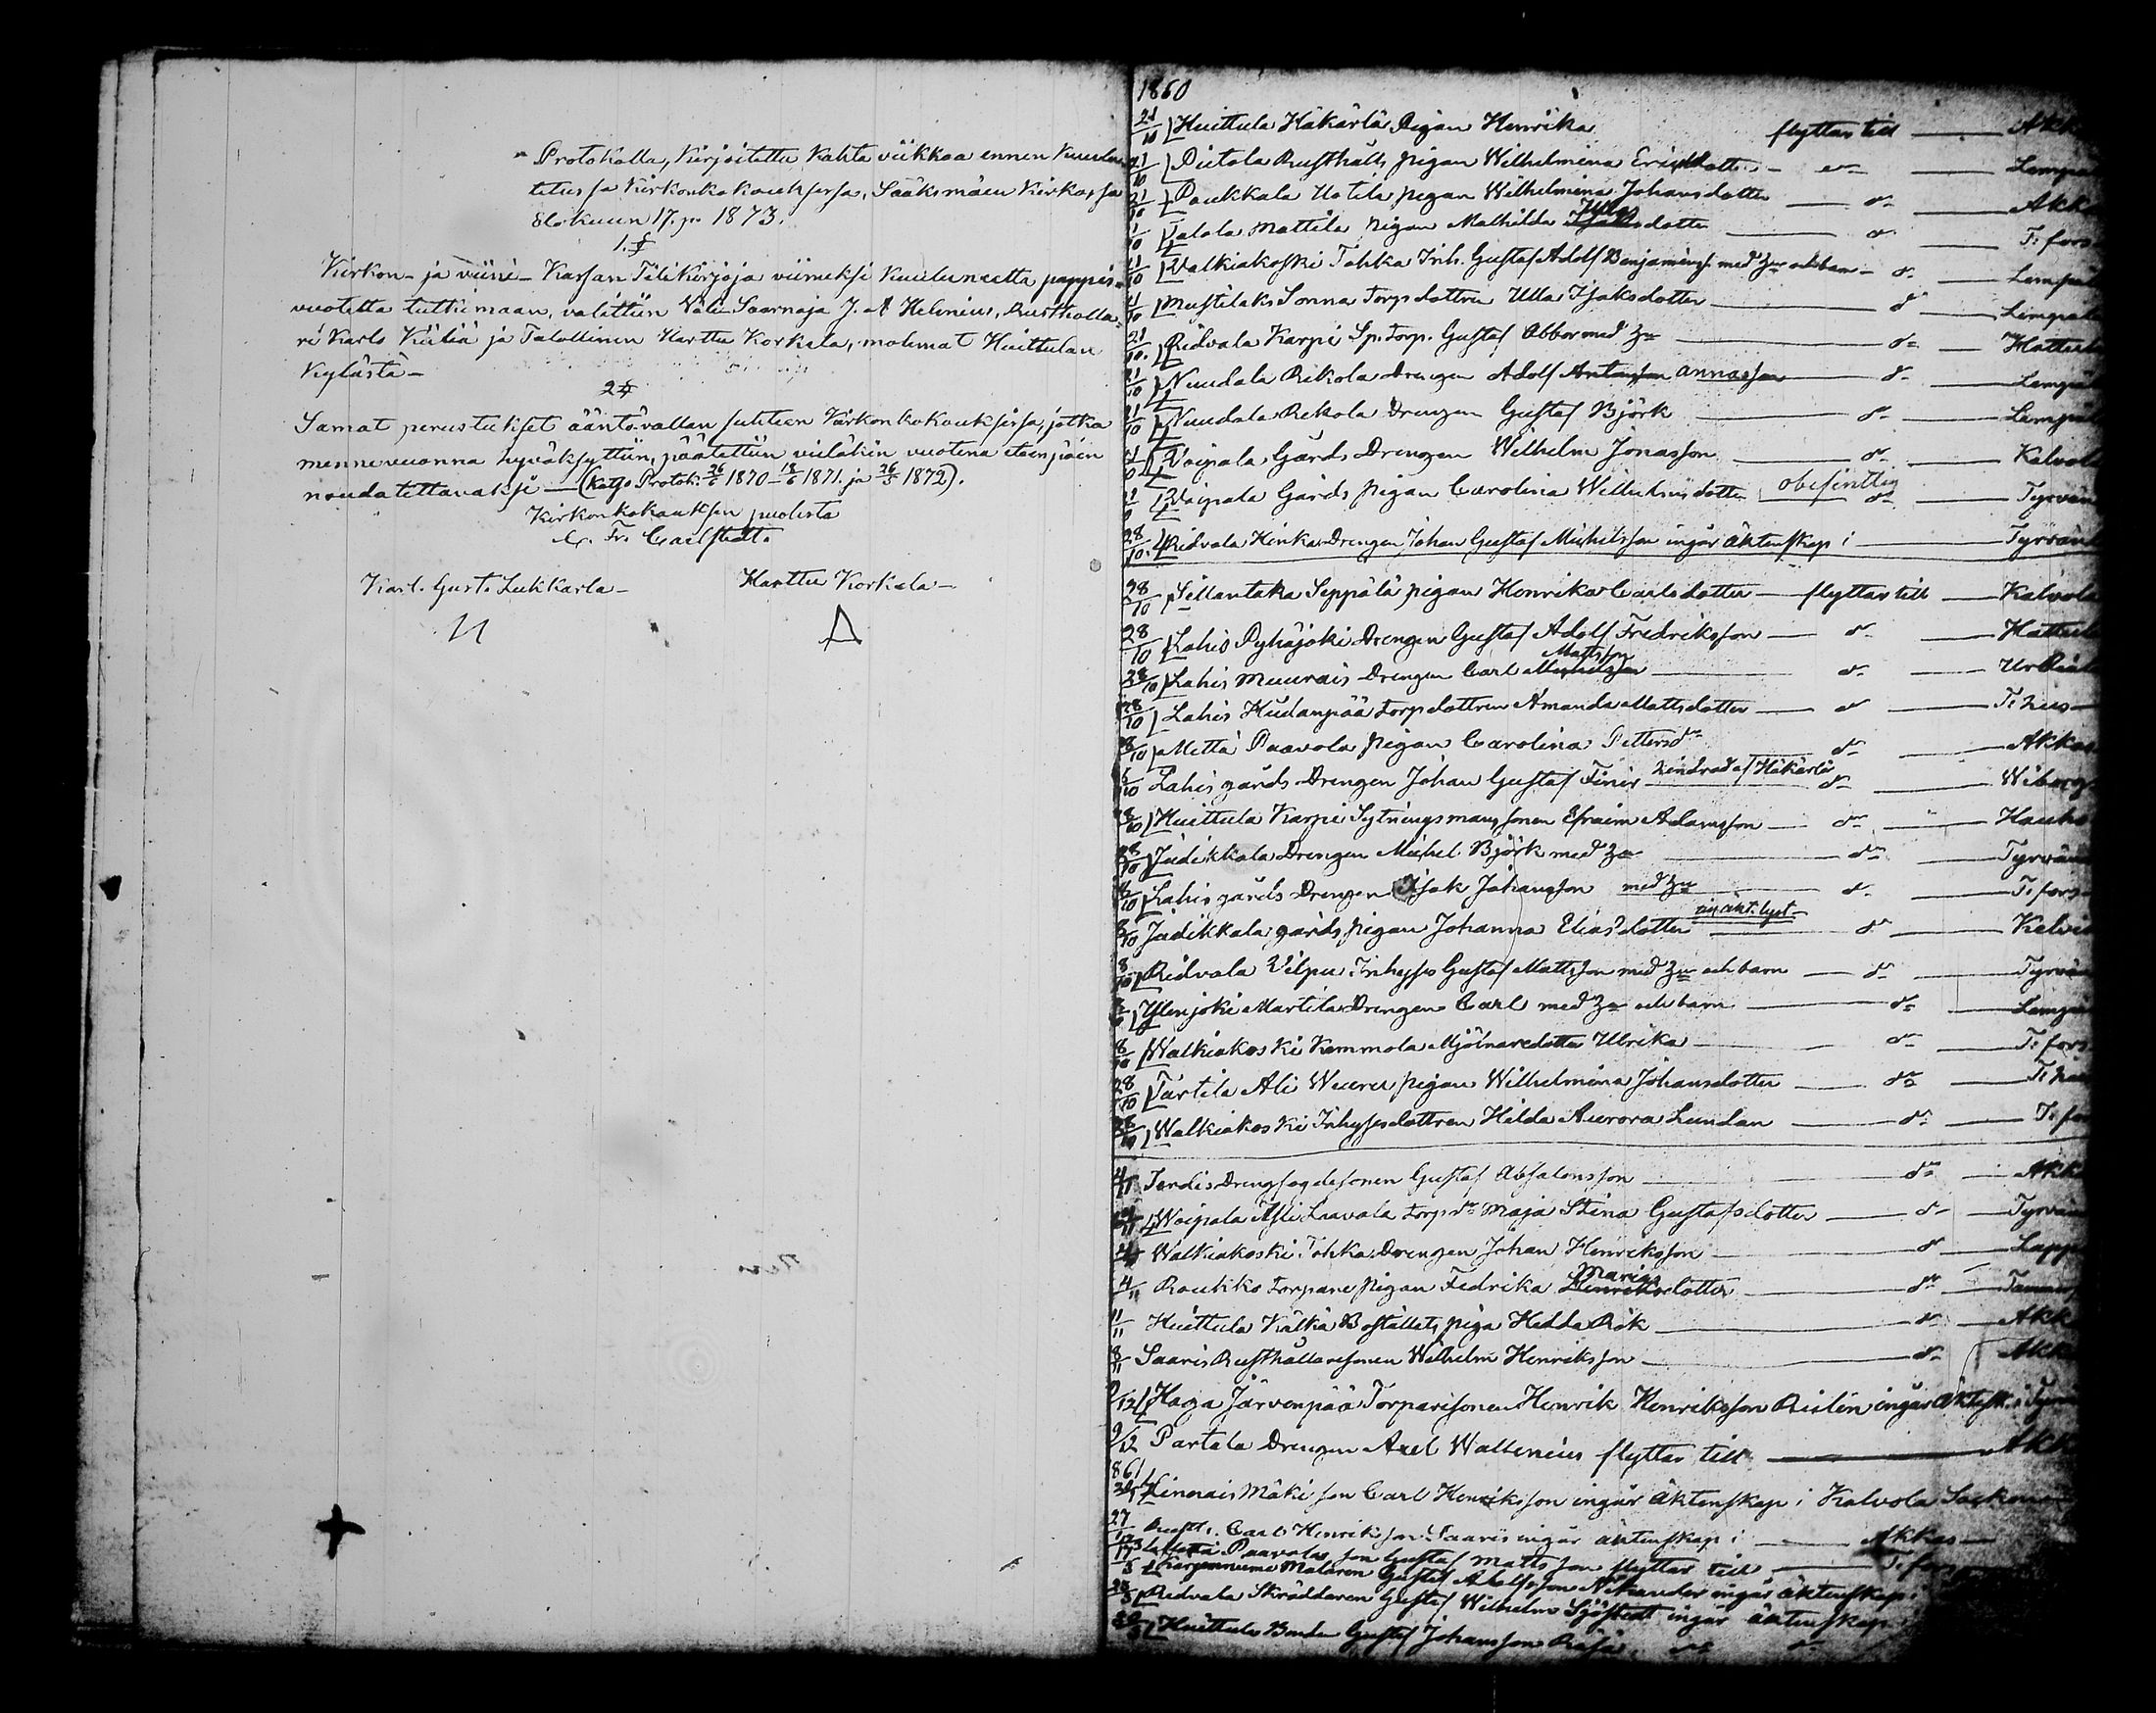 Protokolla, Kirjoitettu Kahta viikkoa ennen Kuulu-
tetussa Kirkonkokouksessa, Sääksmäen Kirkossa
Elokuun 17. p. 1873.
1. §
Kirkon- ja viini- Kassan Tilikirjoja viimeksi Kuluneelta pappis-
vuodelta tutkimaan, valittiin Väli Saarnaja J. A Helenius, Rustholla-
ri Karlo Kiiliä ja Talollinen Harttu Korkala, molemat Huittulan
Kylästä-
2 §
Samat perustukset ääntövallan suhteen Kirkonkokouksissa, jotka
menne vuonna hyväksyttiin, päätettiin vieläkin vuotena eteenpäin
noudatettavaksi - (Katso Protok: 26/6 1870 - 18/6 1871. ja 26/5 1872).
Kirkonkokouksen puolesta
C. Fr. Carlstedt.
Karl. Gust. Lukkarla- Harttu Korkala-
1860
21/10 Huittula Häkärlä Pigan Henrika flyttar till Akk
21/10 Pietola Rusthålls pigan Wilhelmina Ericsdotter do Lempä
21/10 Paukkala Uotila pigan Wilhelmina Johansdotter do Akk
Jutala Mattila Pigan Mathilda dotter do T: fors
Walkiakoski Tohka Inh. Gustaf Adolf Benjaminss. med hu och barn do Lempä
Mustilaks Sonna Torpdottren Ulla Isaksdotter do Lempä
21/10 Ridvala Karpi Sp. torp. Gustaf Abbor med hu do Hattul
21/10 Nuudala Rekola Drengen Adolf Annasson do Lempä
21/10 Nuudala Rekola Drengen Gustaf Björk do Lempä
Voipala Gårds Drengen Wilhelm Jonasson do Kalvola
Voipala Gårds Pigan Carolina Wilhelmsdotter obefintlig do Tyrvän
28/10 Ridvala Heikka Drengen Johan Gustaf Michelsson ingår äktenskap i Tyrvän
28/10 Sillantaka Seppälä pigan Henrika Carlsdotter flyttar till Kalvola
28/10 Lahis Pyhäjoki Drengen Gustaf Adolf Fredriksson do Hattul
28/10 Lahis Muurais Drengen Carl Mattsson do Urdiala
28/10 Lahis Hiidenpää torpdottren Amanda Mattsdotter do T: hus
28/10 Metta Paavola Pigan Carolina Petters dr do Akkas
Lahis gårds Drengen Johan Gustaf hindrad af Häkärlä do Wiborg
Huittula Karpi Sytningsmanssonen Efraim Adamsson do Hauho
28/10 Jutikkala Drengen Michel Björk med hu do Tyrvän
Lahis gårds Drengen Isak Johansson med hu do T: fors
Jutikkala gårds pigan Johanna Eliasdotter ej äkt. lyst- do Kalvio
Ridvala Vilpu Inhyses Gustaf Mattsson med hu och barn do Tyrvän
Ylenjoki Martila Drengen Carl med hu och barn do Lempä
Walkiakoski Kemmola Mjölnaredotter Ulrika do T: fors
28/10 Tarttila Ali Wuoru pigan Wilhelmina Johansdotter do T: hu
28/10 Walkiakoski Inhysesdottren Hilda Aurora Lundan do T: fo
4/11 Jerdis Drengfogdesonen Gustaf Absalonsson do Akk
4/11 Woipala Yli Laavola torp dr Maja Stina Gustafsdotter do Tyrvän
4/11 Walkiakoski Tohka Drengen Johan Henriksson do Lapp
4/11 Roukko torpare pigan Fredrika Mariasdotter do Tamm
11/11 Huittula Kälkä Boställets piga Hedda Rök do Akk
8/11 Saaris Rusthållaresonen Wilhelm Henriksson do Akk
9/12 Haga Järvenpää Torparesonen Henrik Henriksson Rislén ingår Äktesk. i Tyrv
9/12 Partola Drengen Axel Wallenius flyttar till Akk
861
Linnais Mäki son Carl Henriksson ingår äktenskap i Kalvola Socken
27 Rustl. Carl Henriksson Saaris ingår äktenskap i Akkas
Metta Paavola son Gustaf Mattsson flyttar till T: fors
Karjanniemi Målaren Gustaf Adolfsson Nikander ingår äktenskap i
Ridvala Skräddaren Gustaf Wilhelm Sjöstedt ingår äktenskap
Huittula Bonde Gustaf Johansson Räsä do do